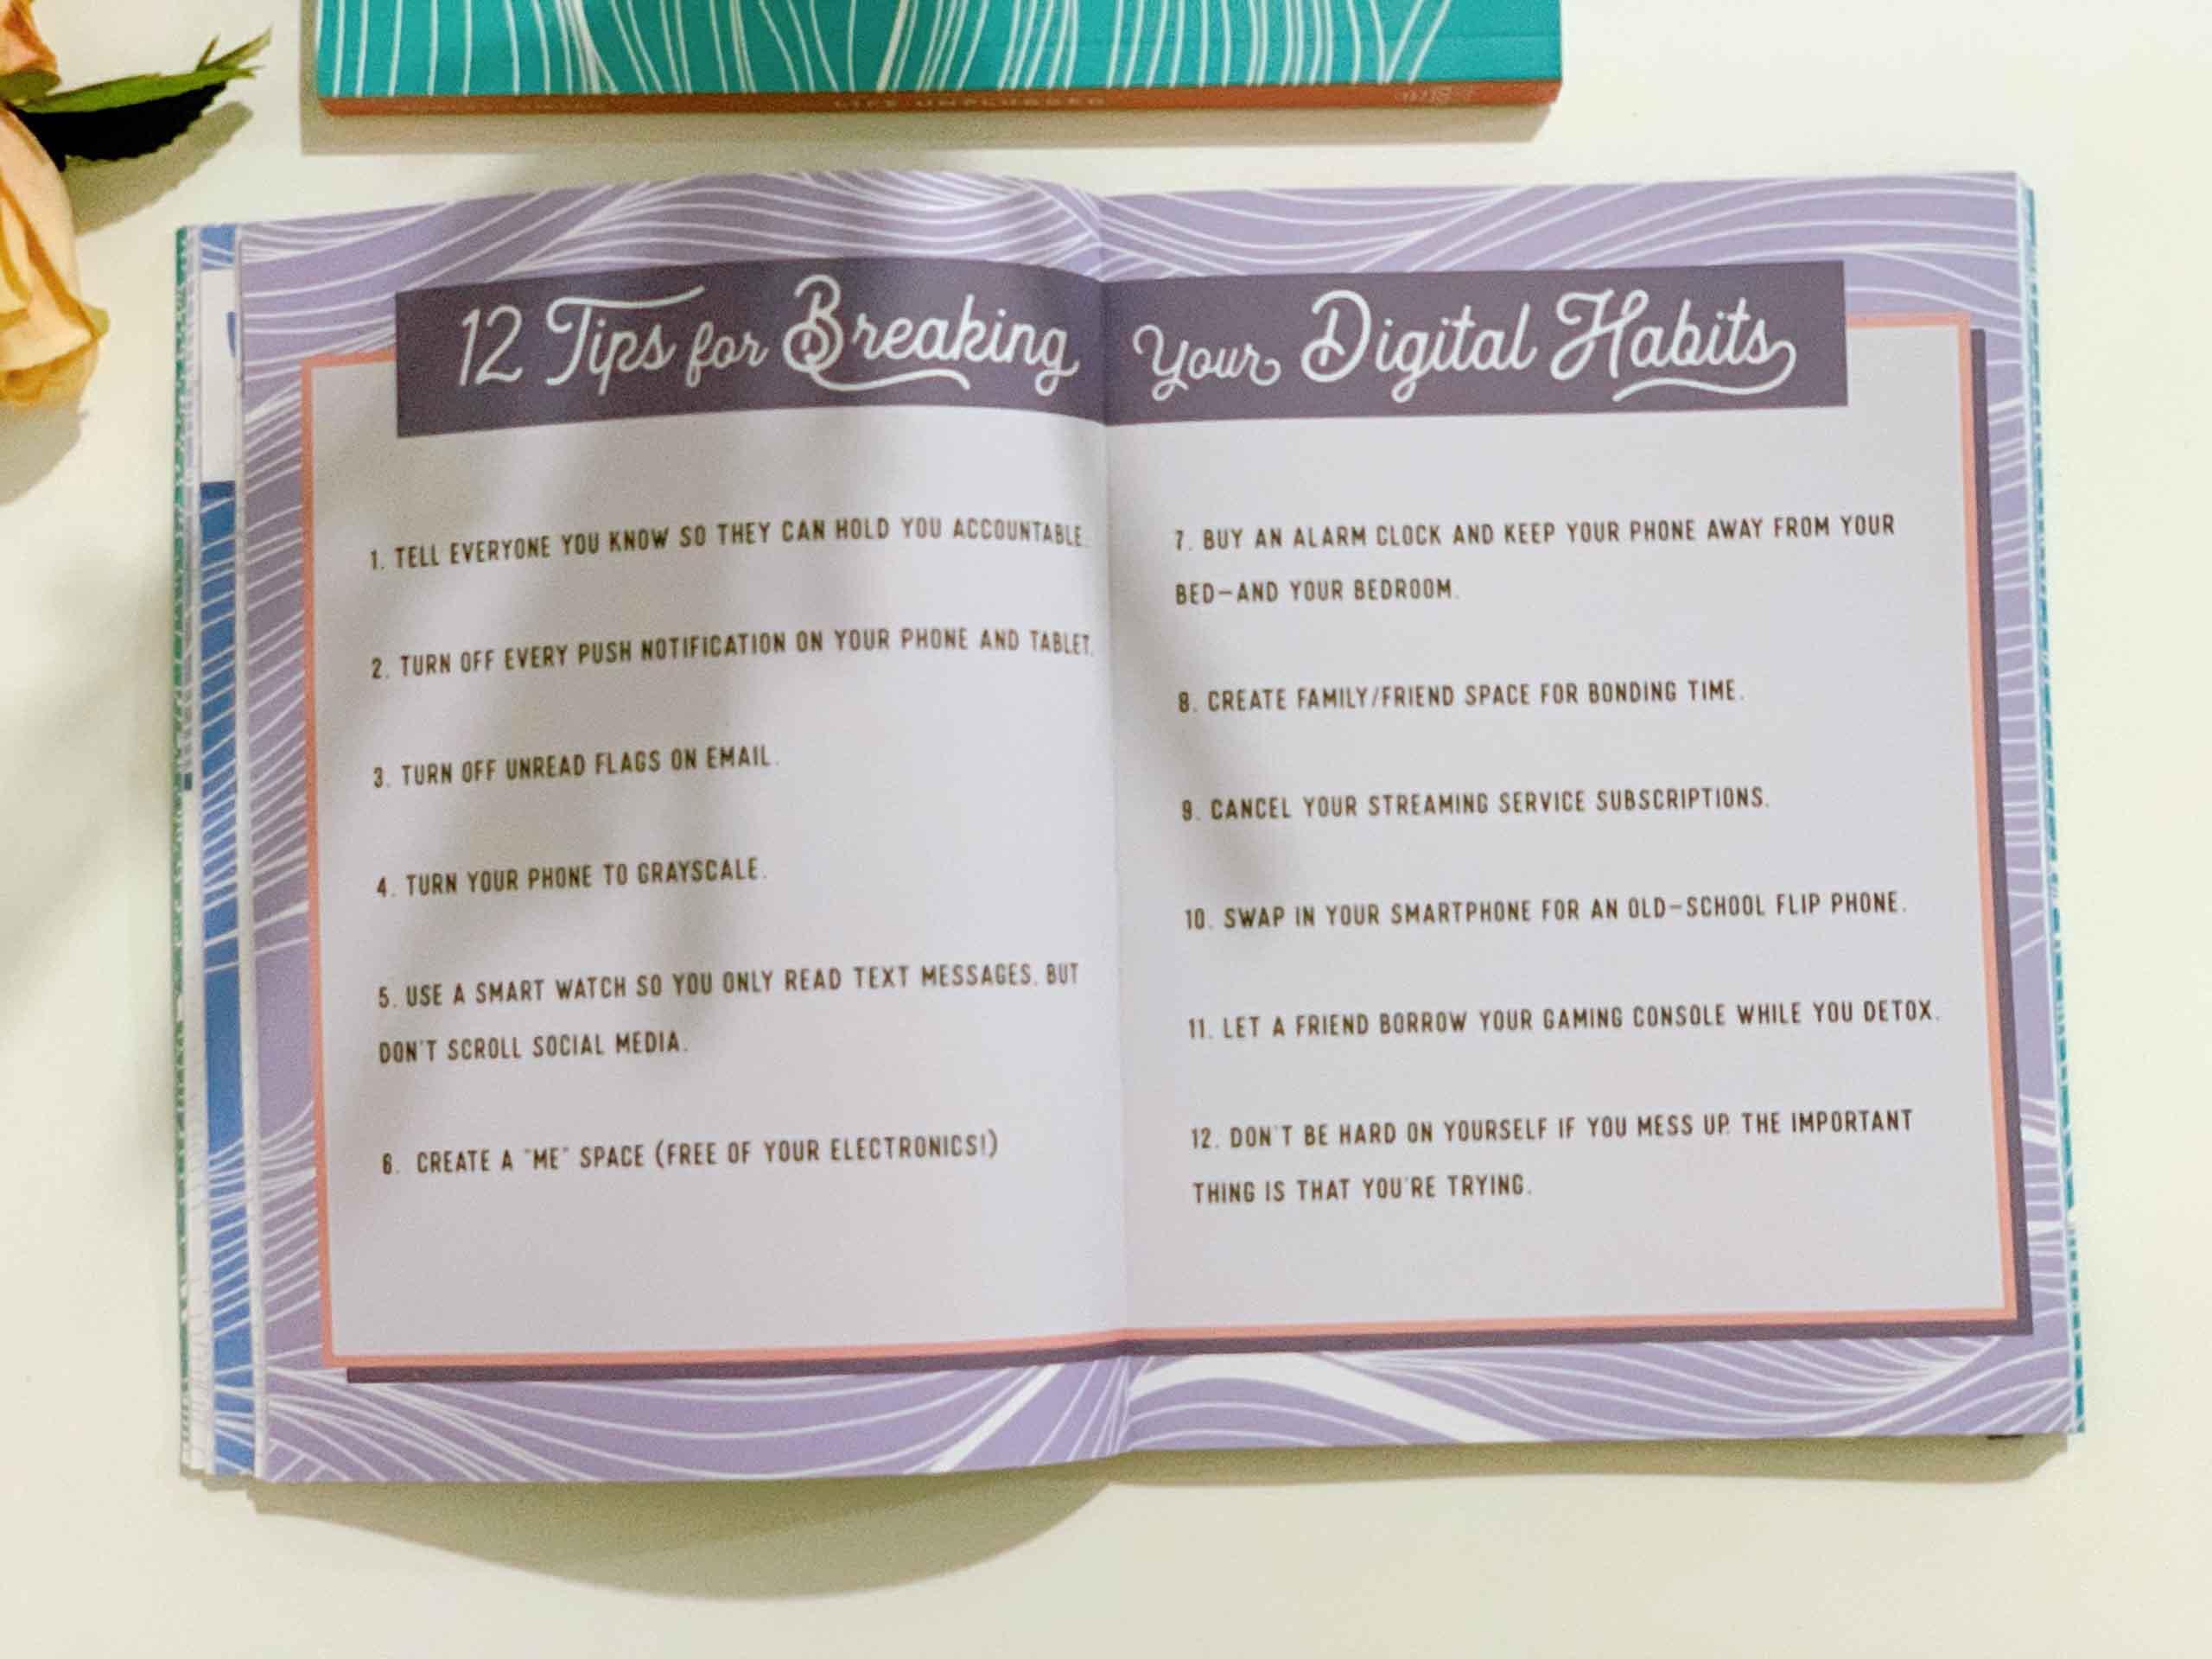 LIFE UNPLUGGED
12 Tips for Breaking Your Digital Habits
1. TELL EVERYONE YOU KNOW SO THEY CAN HOLD YOU ACCOUNTABLE.
2. TURN OFF EVERY PUSH NOTIFICATION ON YOUR PHONE AND TABLET.
3. TURN OFF UNREAD FLAGS ON EMAIL.
4. TURN YOUR PHONE TO GRAYSCALE.
5. USE A SMART WATCH SO YOU ONLY READ TEXT MESSAGES, BUT
DON'T SCROLL SOCIAL MEDIA.
6. CREATE A "ME" SPACE (FREE OF YOUR ELECTRONICS!)
7. BUY AN ALARM CLOCK AND KEEP YOUR PHONE AWAY FROM YOUR
BED—AND YOUR BEDROOM.
8. CREATE FAMILY/FRIEND SPACE FOR BONDING TIME.
9. CANCEL YOUR STREAMING SERVICE SUBSCRIPTIONS.
10. SWAP IN YOUR SMARTPHONE FOR AN OLD-SCHOOL FLIP PHONE.
11. LET A FRIEND BORROW YOUR GAMING CONSOLE WHILE YOU DETOX.
12. DON'T BE HARD ON YOURSELF IF YOU MESS UP. THE IMPORTANT
THING IS THAT YOU'RE TRYING.